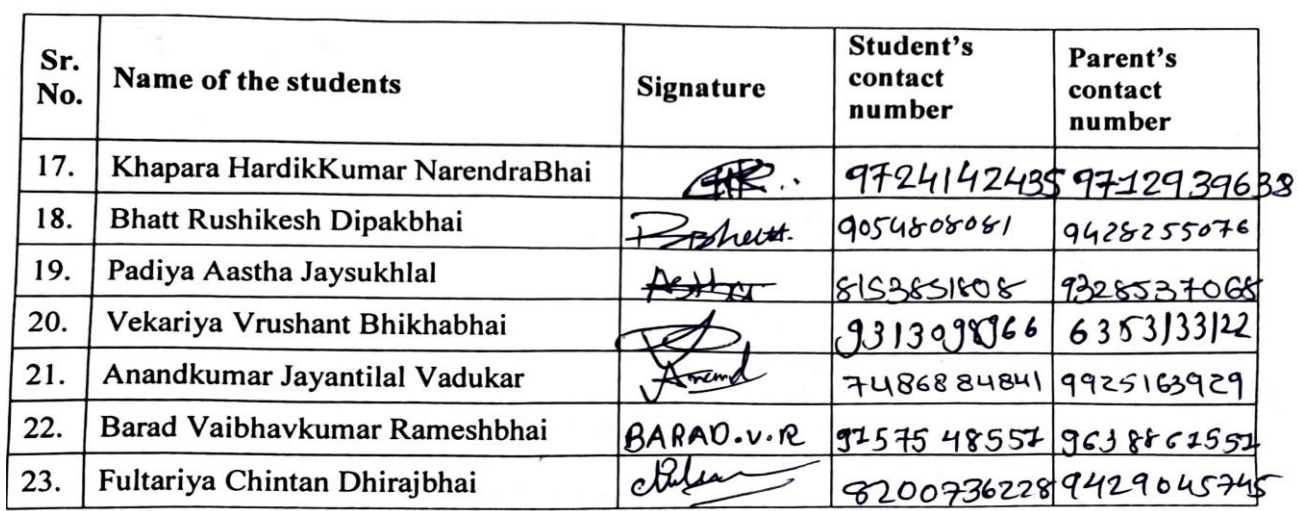 Sr. No. Name of the students Signature Student's contact number Parent's contact number
17. Khapara HardikKumar NarendraBhai 9724142435 9712939638
18. Bhatt Rushikesh Dipakbhai 9054808081 9428255076
19. Padiya Aastha Jaysukhlal Aastha 8153851808 9328537068
20. Vekariya Vrushant Bhikhabhai 9313098966 6353133122
21. Anandkumar Jayantilal Vadukar Anand 7486884841 9925163929
22. Barad Vaibhavkumar Rameshbhai BARAD.V.R 9157548557 9638861551
23. Fultariya Chintan Dhirajbhai 8200736228 9429045745